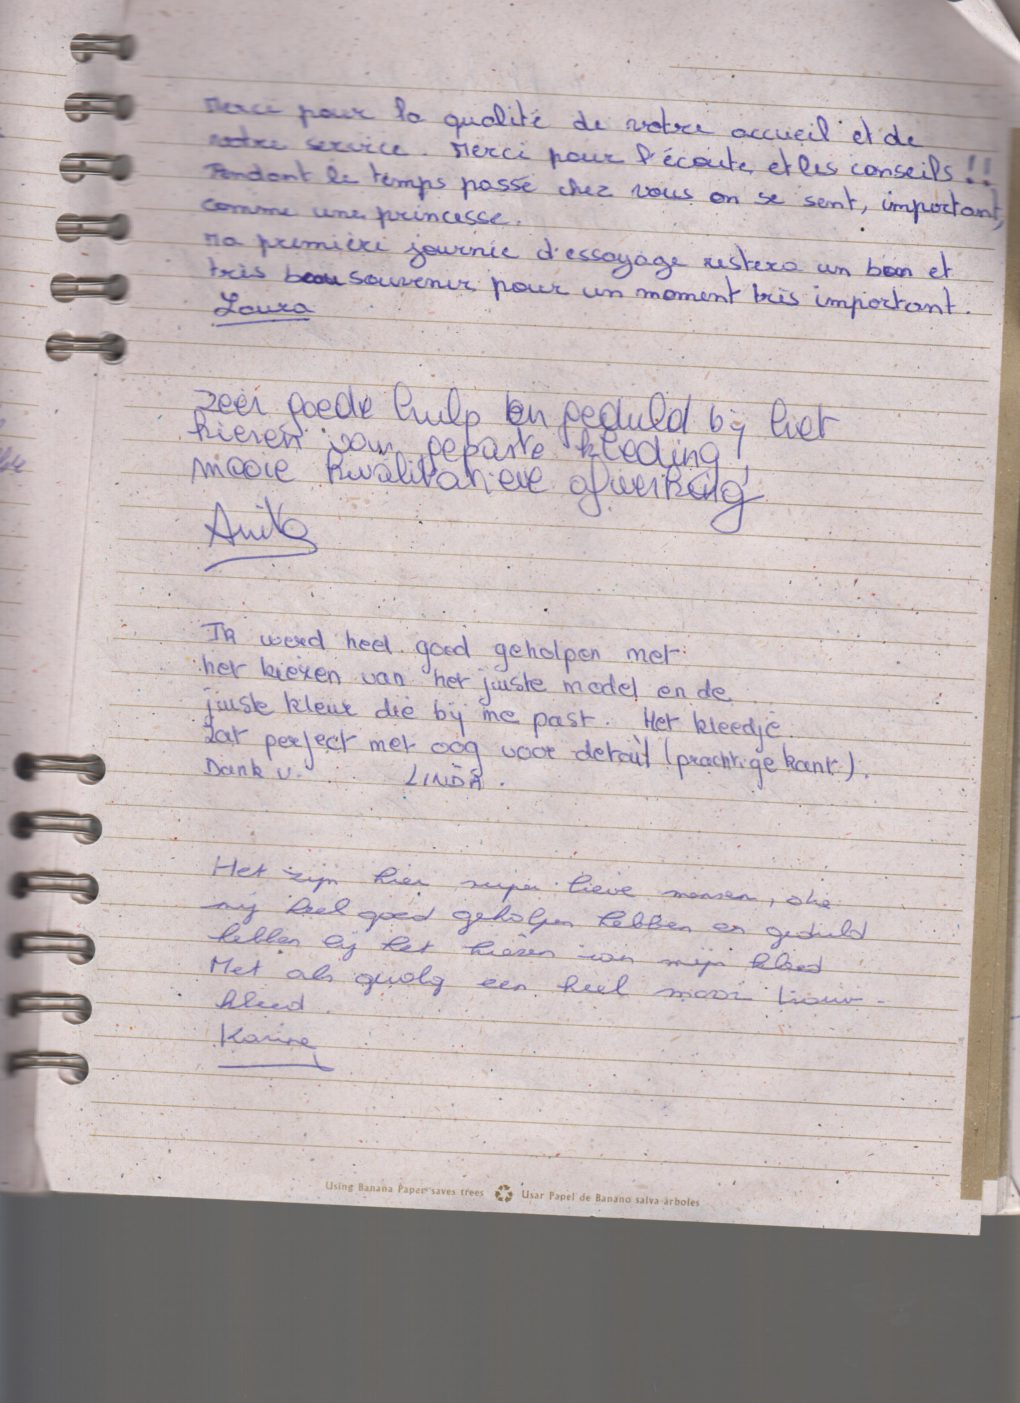 Merci pour la qualité de votre accueil et de
votre service. Merci pour l'écoute, et les conseils !!
Pendant le temps passé chez vous on se sent, important,
comme une princesse.
Ma première journée d'essayage restera un bon et
très beau souvenir, pour un moment très important.
Laura
zeer goede hulp en geduld bij het
kiezen van gepaste kleding!
mooie kwalitatieve afwerking
Anita
Ik werd heel goed geholpen met
het kiezen van het juiste model en de
juiste kleur die bij me past. Het kleedje
zat perfect met oog voor detail (prachtige kant).
Dank u. LINDA.
Het zijn hier super lieve mensen, die
mij heel goed geholpen hebben en geduld
hebben bij het kiezen van mijn kleed
Met als gvolg een heel mooi trouw-
kleed.
Karine
Using Banana Paper saves trees Usar Papel de Banano salva arboles